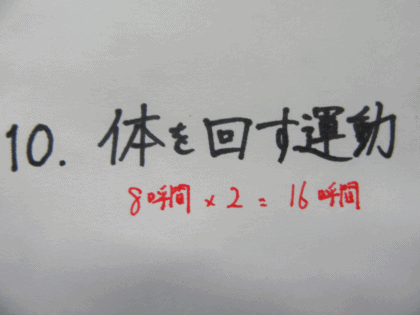 10. 体を回す運動
8呼間 × 2 = 16呼間